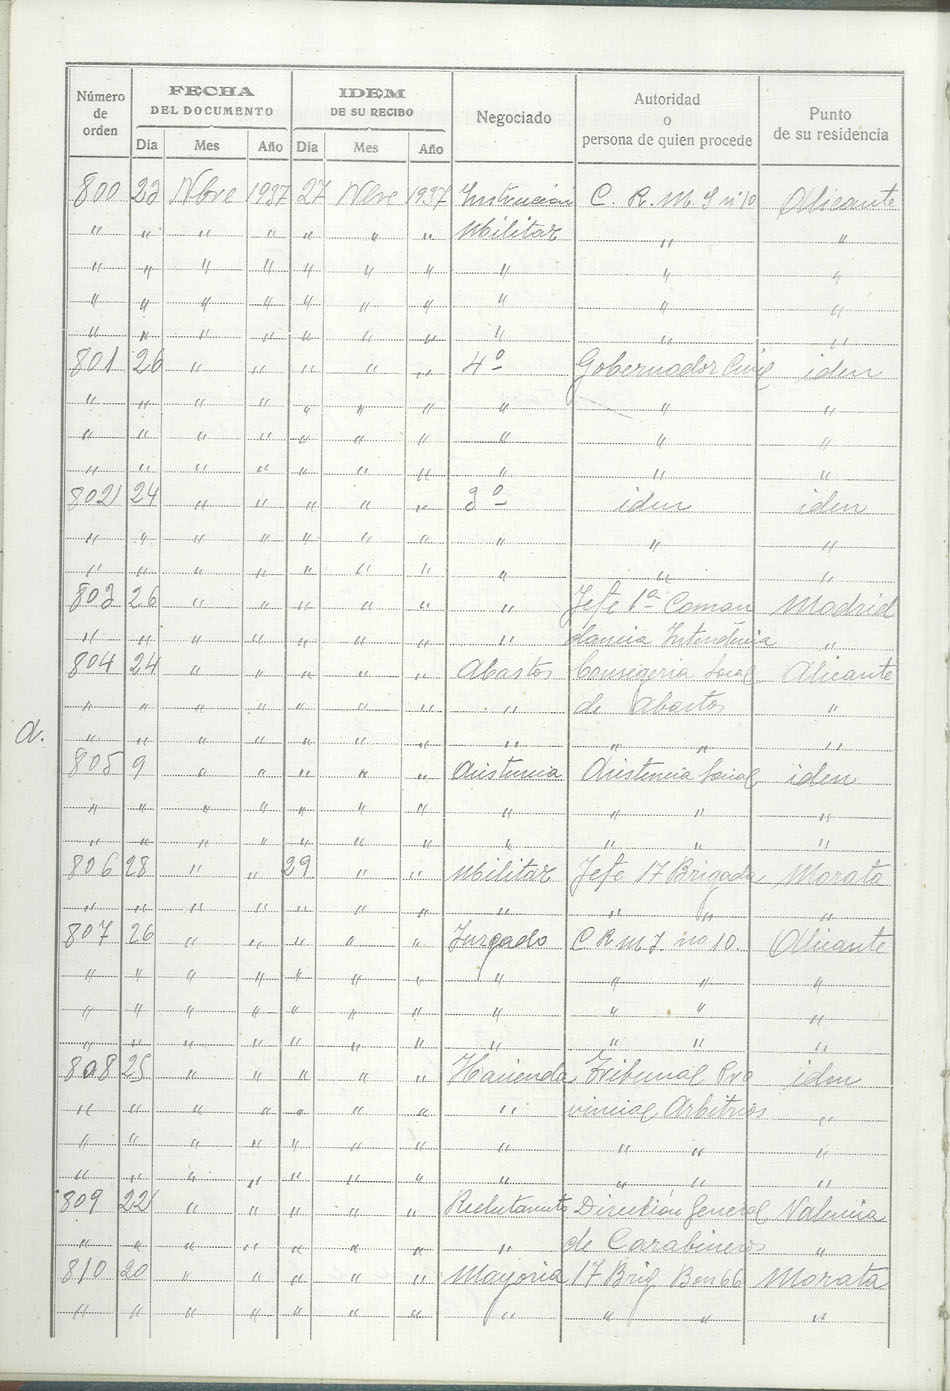 Número de orden FECHA DEL DOCUMENTO IDEM DE SU RECIBO Negociado Autoridad o persona de quien procede Punto de su residencia
Día Mes Año Día Mes Año
800 23 Nbre 1937 27 Nbre 1937 Instrucion C. R. M. I nº 10 Alicante
" " " " " " " Militar " "
" " " " " " " " " "
" " " " " " " " " "
" " " " " " " " " "
801 26 " " " " " 4º Gobernador Civil iden
" " " " " " " " " "
" " " " " " " " " "
" " " " " " " " " "
802 24 " " " " " 3º iden iden
" " " " " " " " " "
" " " " " " " " " "
803 26 " " " " " " Jefe 1ª Coman Madrid
" " " " " " " " dancia Intendencia "
804 24 " " " " " Abastos Consegeria Local Alicante
" " " " " " " " de Abastos "
a. " " " " " " " " " " "
805 9 " " " " " Asistencia Asistencia Social iden
" " " " " " " " " " "
" " " " " " " " " " "
806 28 " " 29 " " Militar Jefe 17 Brigada Morata
" " " " " " " " " " "
807 26 " " " " " Jurgado C R M I no 10. Alicante
" " " " " " " " " " "
" " " " " " " " " " "
" " " " " " " " " " "
808 25 " " " " " Hacienda Tribunal Pro iden
" " " " " " " " vincial Arbitrios "
" " " " " " " " " " "
" " " " " " " " " " "
809 22 " " " " " Reclutamto Dirección General Valencia
" " " " " " " " de Carabineros "
810 20 " " " " " Mayoria 17 Brig Bon 66 Morata
" " " " " " " " " " "